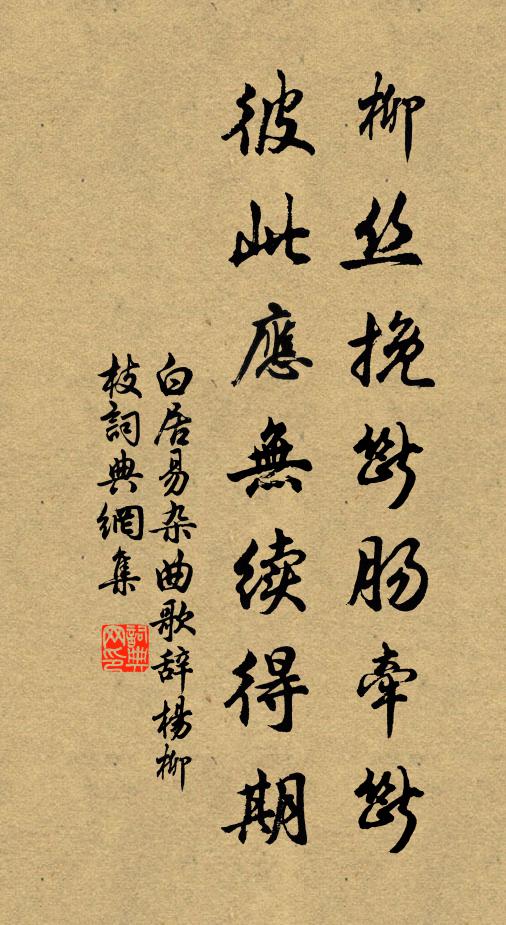 柳丝挽断肠牵断
彼此應無续得期
白居易杂曲歌辞楊柳
枝詞典網集
詞典
网印